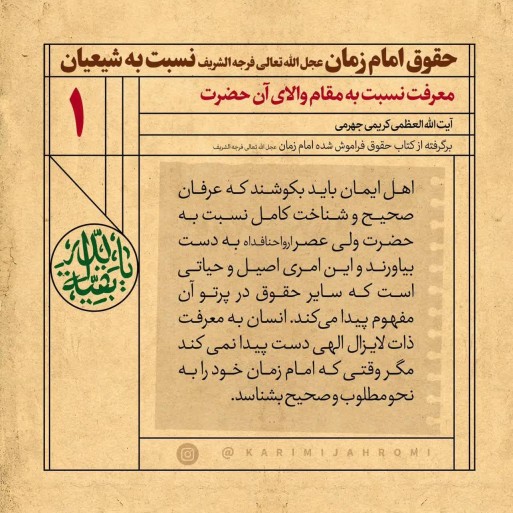 حقوق امام زمان عجل الله تعالی فرجه الشریف نسبت به شیعیان
معرفت نسبت به مقام والای آن حضرت
۱
آیت الله العظمی کریمی جهرمی
برگرفته از کتاب حقوق فراموش شده امام زمان عجل الله تعالی فرجه الشریف
اهل ایمان باید بکوشند که عرفان
صحیح و شناخت کامل نسبت به
حضرت ولی عصر ارواحنافداه به دست
بیاورند و این امری اصیل و حیاتی
است که سایر حقوق در پرتو آن
مفهوم پیدا می‌کند. انسان به معرفت
ذات لایزال الهی دست پیدا نمی کند
مگر وقتی که امام زمان خود را به
نحو مطلوب و صحیح بشناسد.
یا بقیة الله
@KARIMIJAHROMI